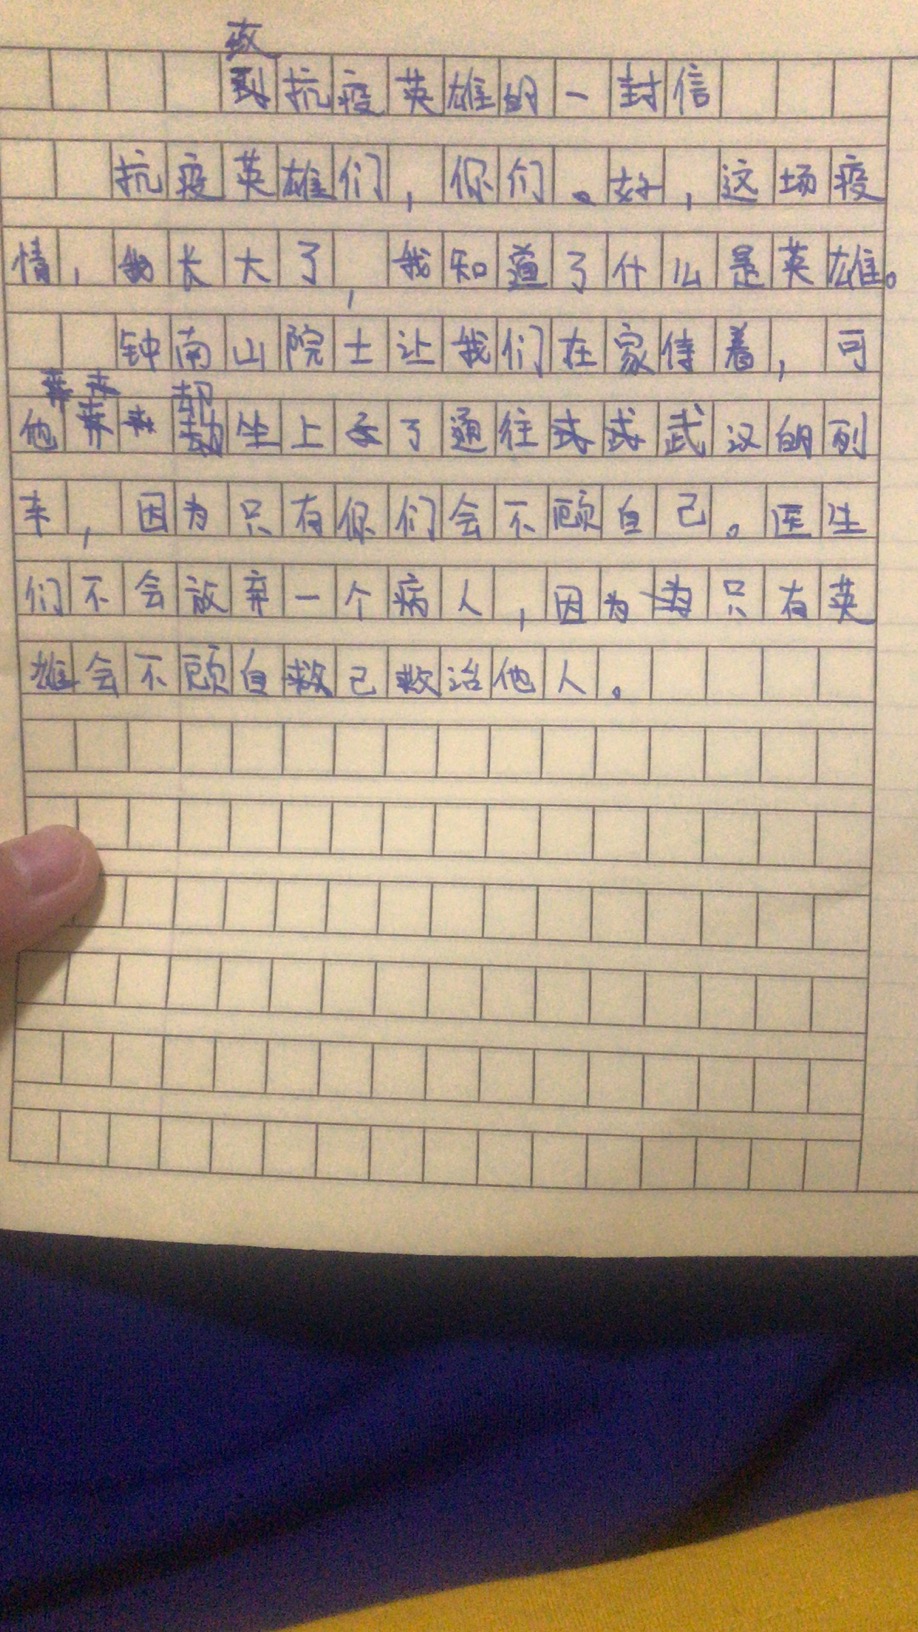 致
抗疫英雄的一封信
抗疫英雄们，你们。好，这场疫
情，我长大了，我知道了什么是英雄。
钟南山院士让我们在家待着，可
他却坐上了通往武汉的列
车，因为只有你们会不顾自己。医生
们不会放弃一个病人，因为只有英
雄会不顾自救己救治他人。